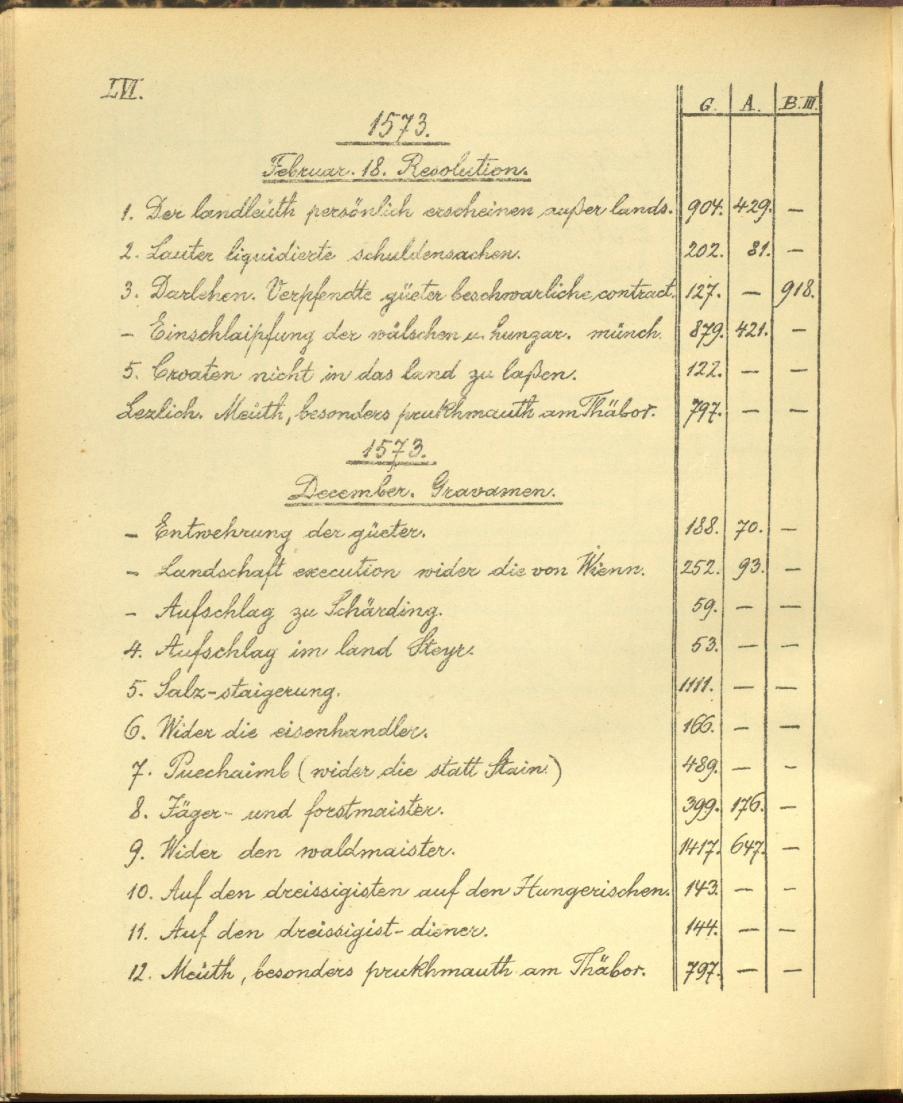 LVI.
G. A. B.III.
1573.
Februar. 18. Resolution.
1. Der landleüth persönlich erscheinen außer lands. 904. 429. —
2. Lauter liquidierte schuldensachen. 202. 81. —
3. Darlehen. Verpfendte güeter beschwarliche contract. 127. — 918.
— Einschlaipfung der wälschen u. hungar. münch. 879. 421. —
5. Croaten nicht in das land zu laßen. 122. — —
Lezlich. Meüth, besonders prukhmauth am Thäbor. 797. — —
1573.
December. Gravamen.
— Entwehrung der güeter. 188. 70. —
— Landschaft execution wider die von Wienn. 252. 93. —
— Aufschlag zu Schärding. 59. — —
4. Aufschlag im land Steyr. 53. — —
5. Salz-staigerung. 1111. — —
6. Wider die eisenhandler. 166. — —
7. Puechaimb (wider die statt Stain.) 489. — —
8. Jäger- und forstmaister. 399. 176. —
9. Wider den waldmaister. 1417. 647. —
10. Auf den dreissigisten auf den Hungerischen. 143. — —
11. Auf den dreissigist-diener. 144. — —
12. Meüth, besonders prukhmauth am Thäbor. 797. — —